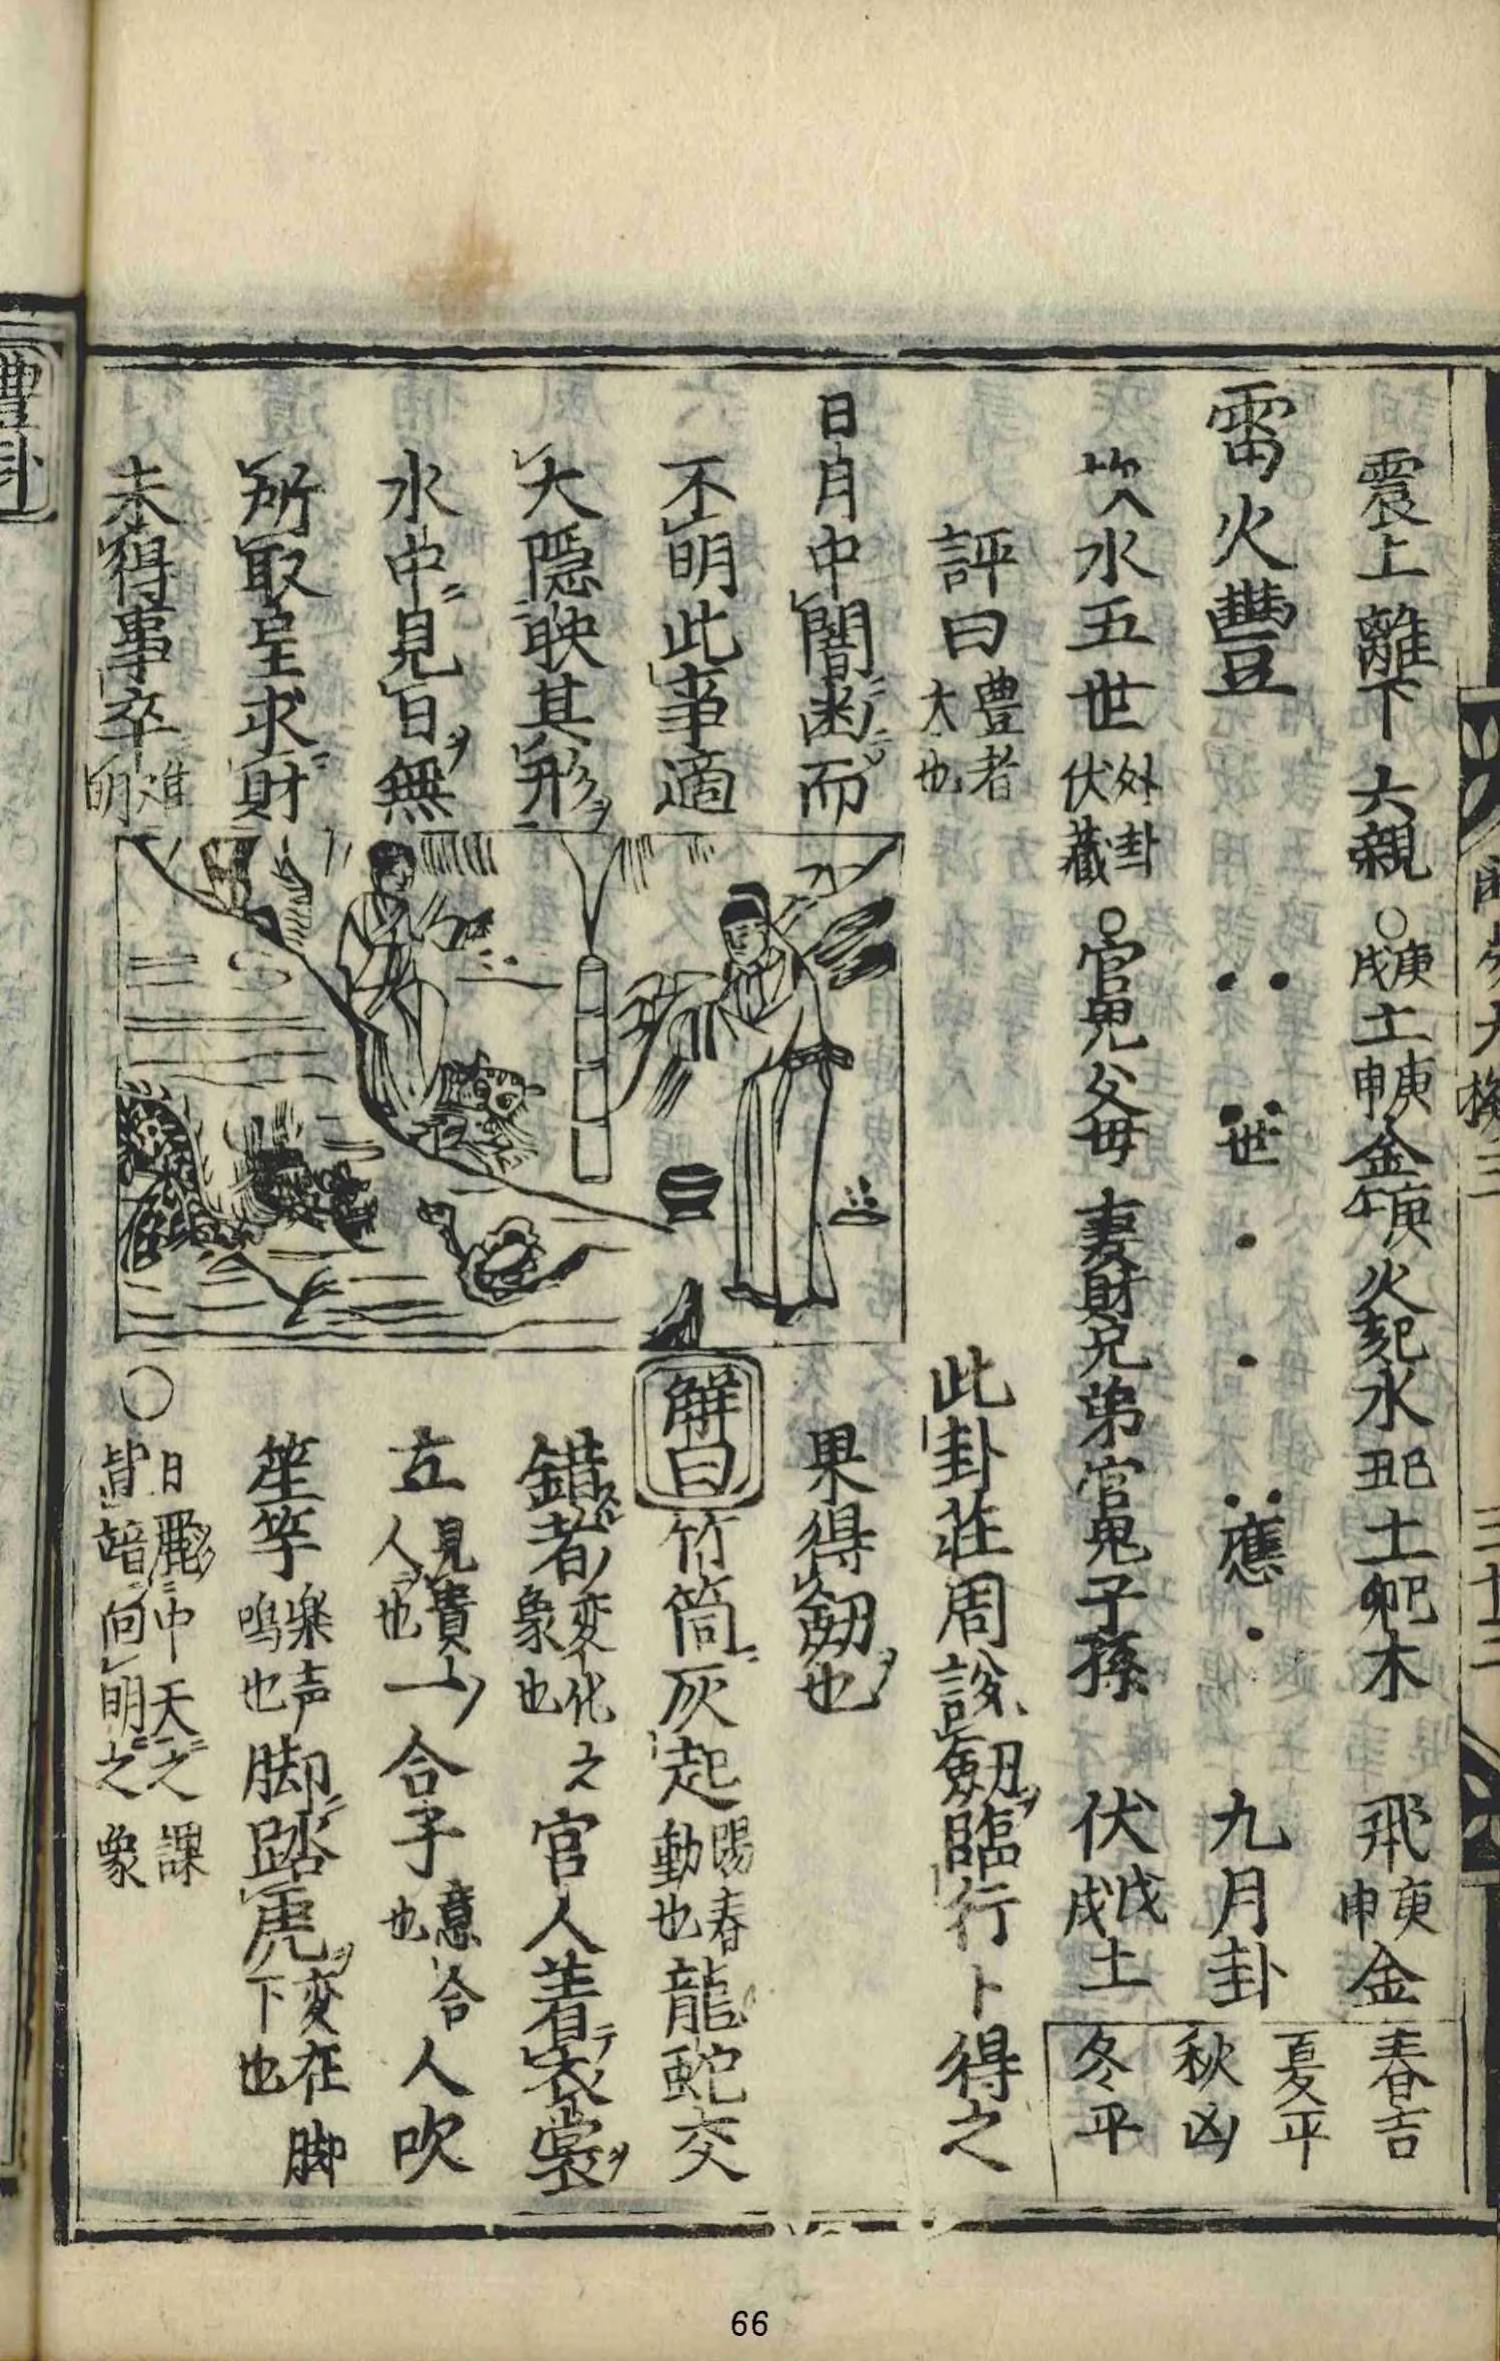 震上離下 六親 〇庚戌土庚申金庚午火己亥水己丑土己卯木 飛庚申金
雷火豐 世 應 九月卦
坎水五世 外卦伏藏 〇官鬼父母 妻財兄弟官鬼子孫 伏戊戌土
春吉
夏平
秋凶
冬平
評曰 豊者大也 此卦莊周說劔臨行卜得之
日月中闇凾而 果得劔也
不明此事適
大隱映其形
水中見日無
所取呈求財
未得事卒難明
解曰 竹筒灰起 陽春動也 龍蛇交
錯者 変化之象也 官人着衣裳
立 見貴人也 一合子 意合也 合人吹
笙竽 楽声鳴也 脚踏虎 変在脚下也
〇日麗中天之課
皆暗向明之象
豊卦
三十三
66